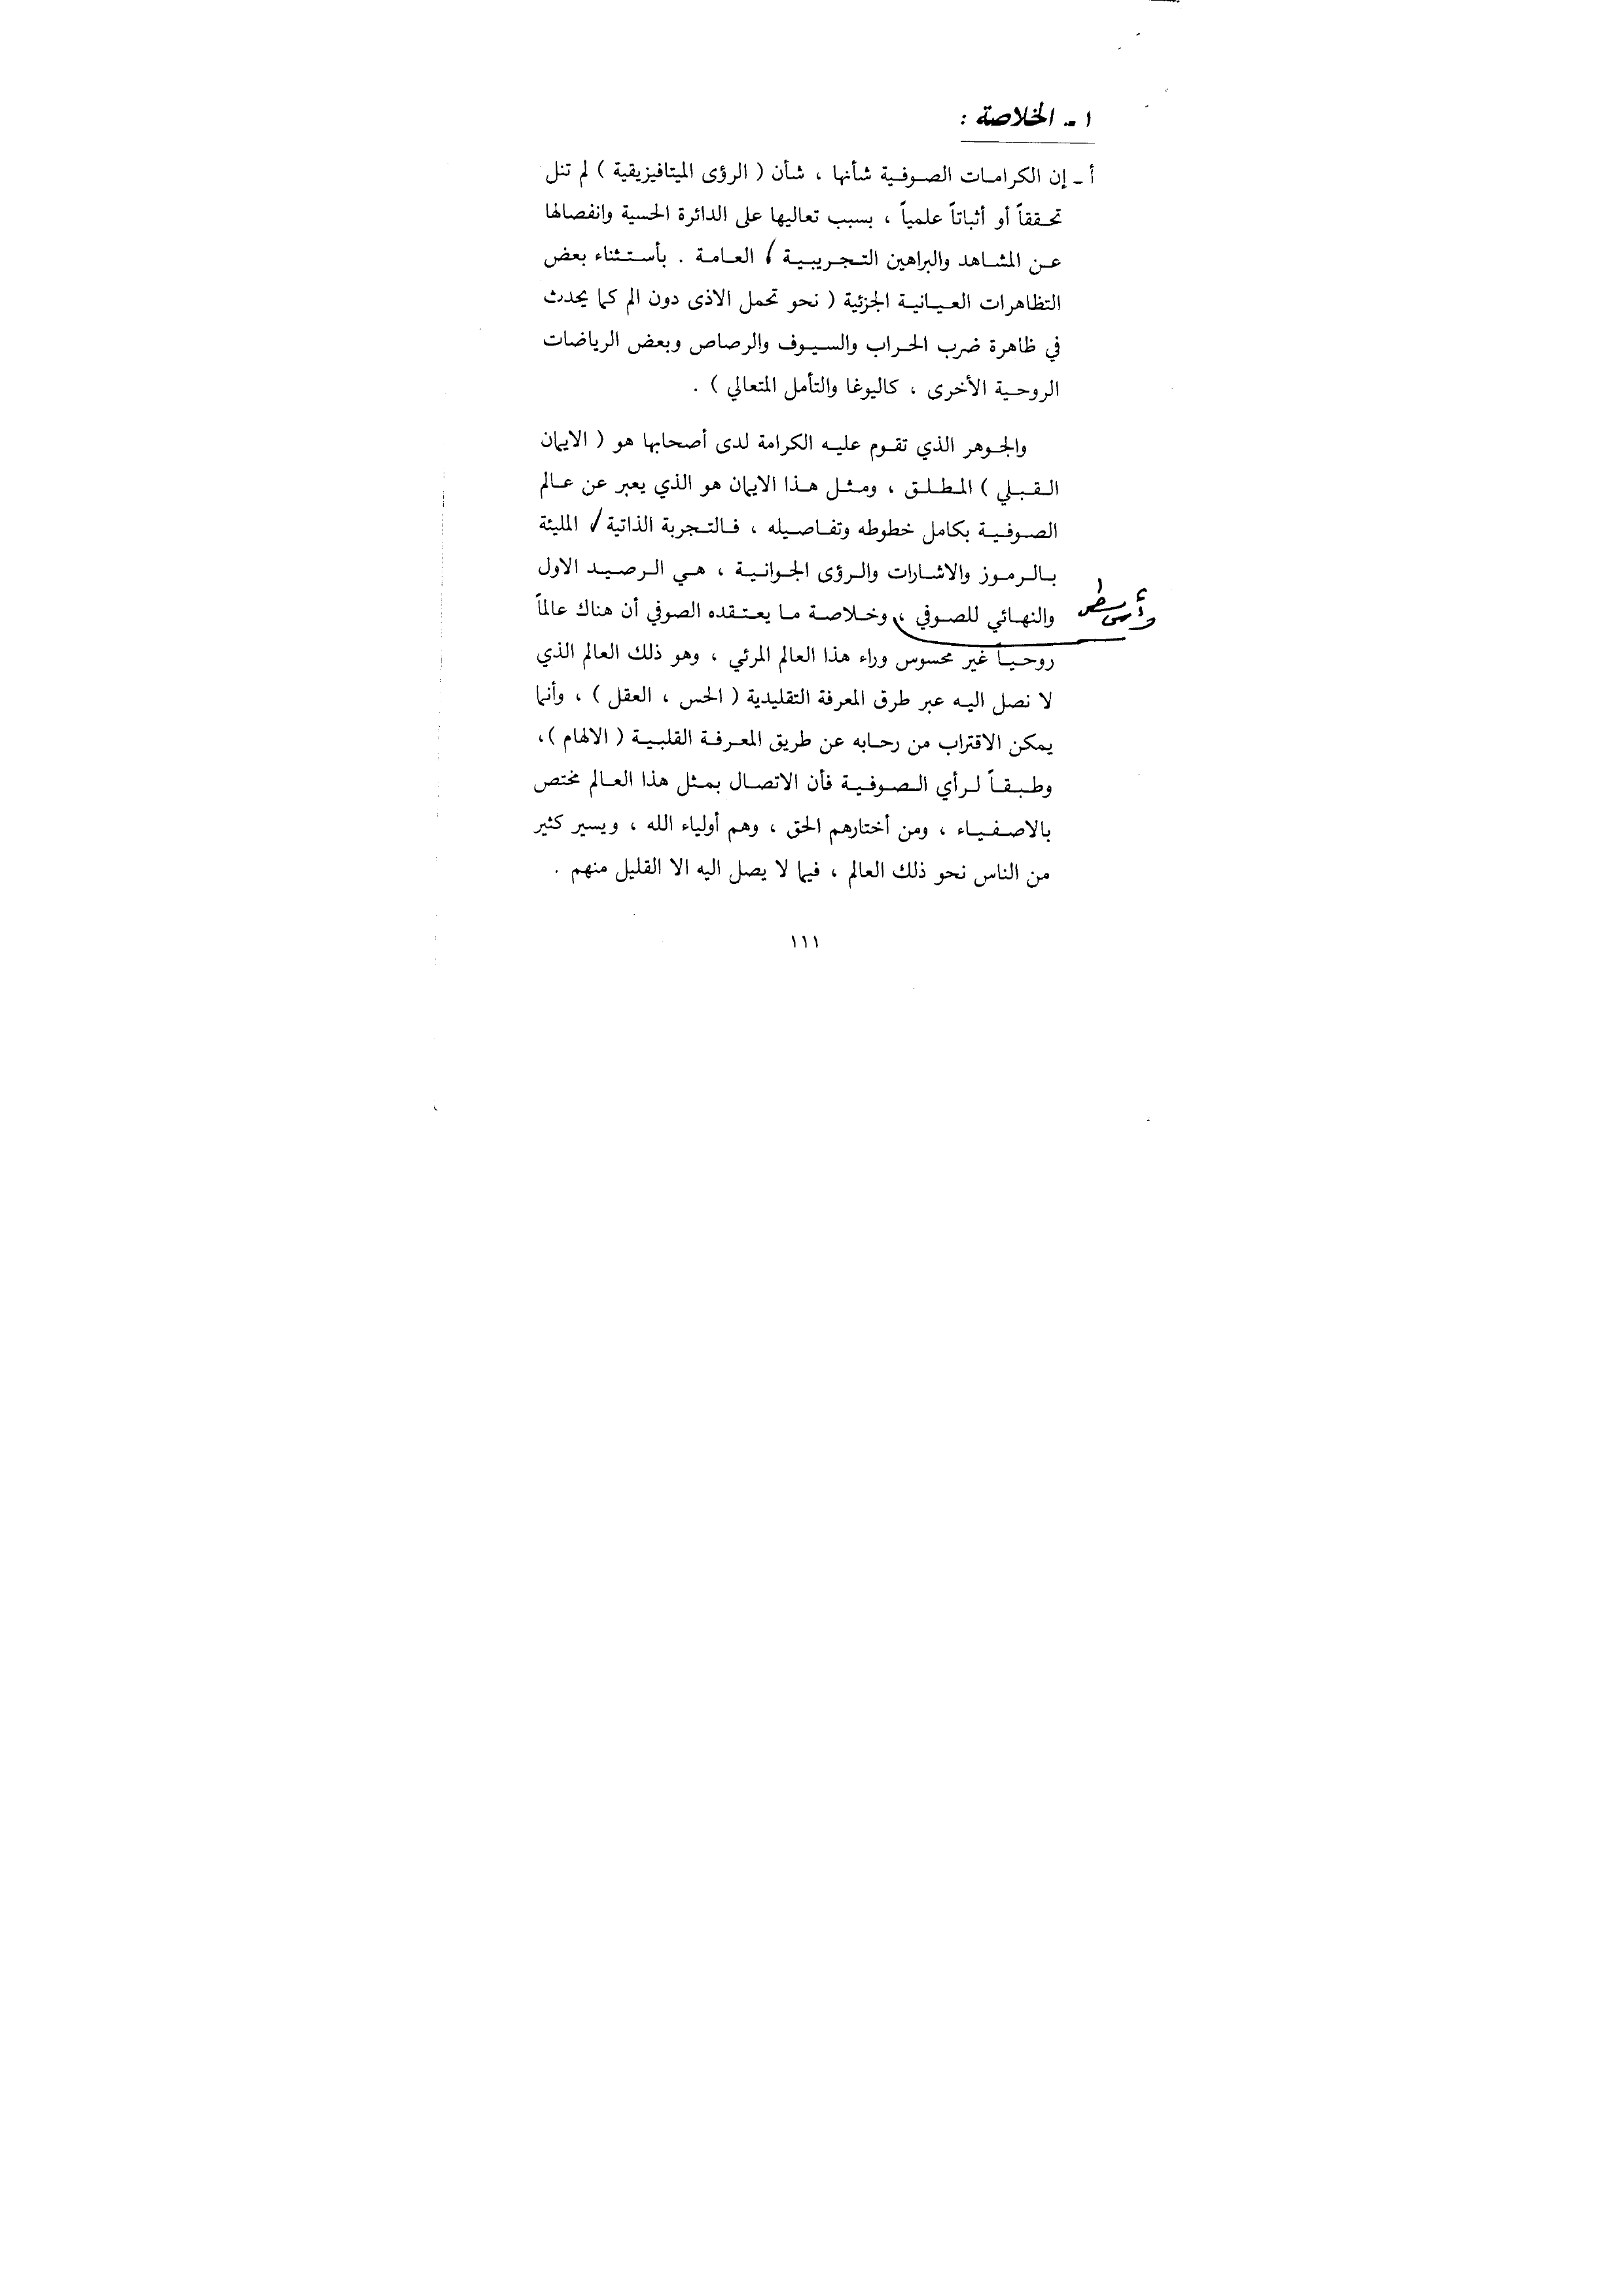 ١ ـ الخلاصة :
أ ـ إن الكرامات الصوفية شأنها ، شأن ( الرؤى الميتافيزيقية ) لم تنل
تحققاً أو أثباتاً علمياً ، بسبب تعاليها على الدائرة الحسية وانفصالها
عن المشاهد والبراهين التجريبية / العامة . بأستثناء بعض
التظاهرات العيانية الجزئية ( نحو تحمل الاذى دون الم كما يحدث
في ظاهرة ضرب الحراب والسيوف والرصاص وبعض الرياضات
الروحية الأخرى ، كاليوغا والتأمل المتعالي ) .
والجوهر الذي تقوم عليه الكرامة لدى أصحابها هو ( الايمان
القبلي ) المطلق ، ومثل هذا الايمان هو الذي يعبر عن عالم
الصوفية بكامل خطوطه وتفاصيله ، فالتجربة الذاتية / المليئة
بالرموز والاشارات والرؤى الجوانية ، هي الرصيد الاول
والنهائي للصوفي ، وخلاصة ما يعتقده الصوفي أن هناك عالماً
روحياً غير محسوس وراء هذا العالم المرئي ، وهو ذلك العالم الذي
لا نصل اليه عبر طرق المعرفة التقليدية ( الحس ، العقل ) ، وأنما
يمكن الاقتراب من رحابه عن طريق المعرفة القلبية ( الالهام ) ،
وطبقاً لرأي الصوفية فأن الاتصال بمثل هذا العالم مختص
بالاصفياء ، ومن أختارهم الحق ، وهم أولياء الله ، ويسير كثير
من الناس نحو ذلك العالم ، فيما لا يصل اليه الا القليل منهم .
١١١